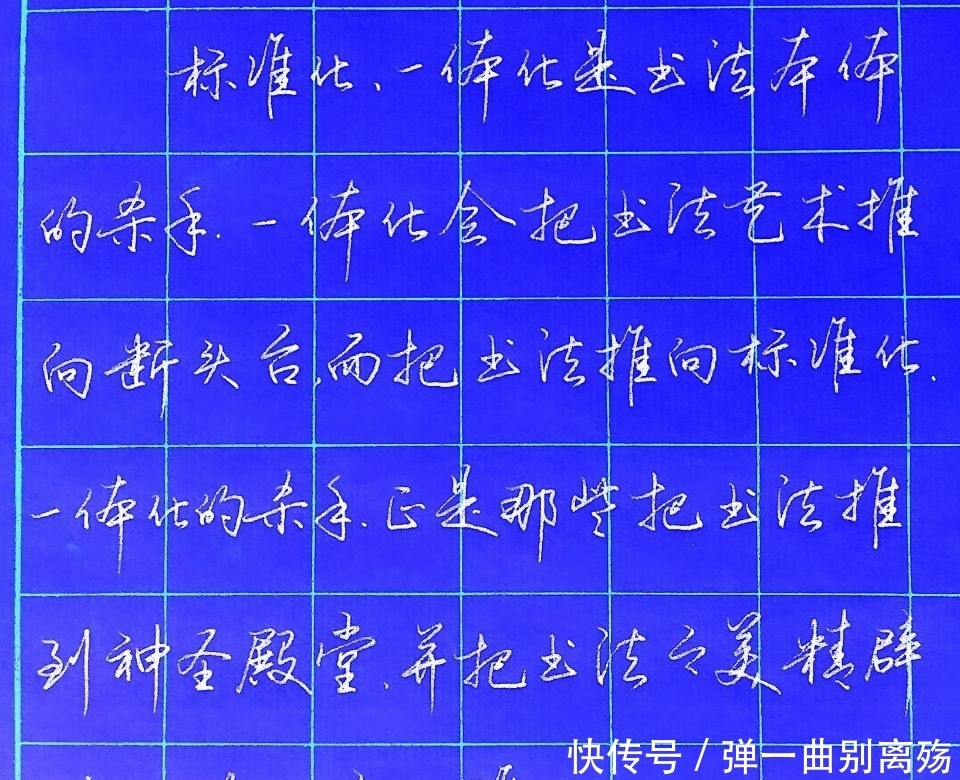 标准化、一体化是书法本体
的杀手.一体化会把书法艺术推
向断头台,而把书法推向标准化、
一体化的杀手,正是那些把书法推
到神圣殿堂,并把书法之美精辟
快传号 / 弹一曲别离殇